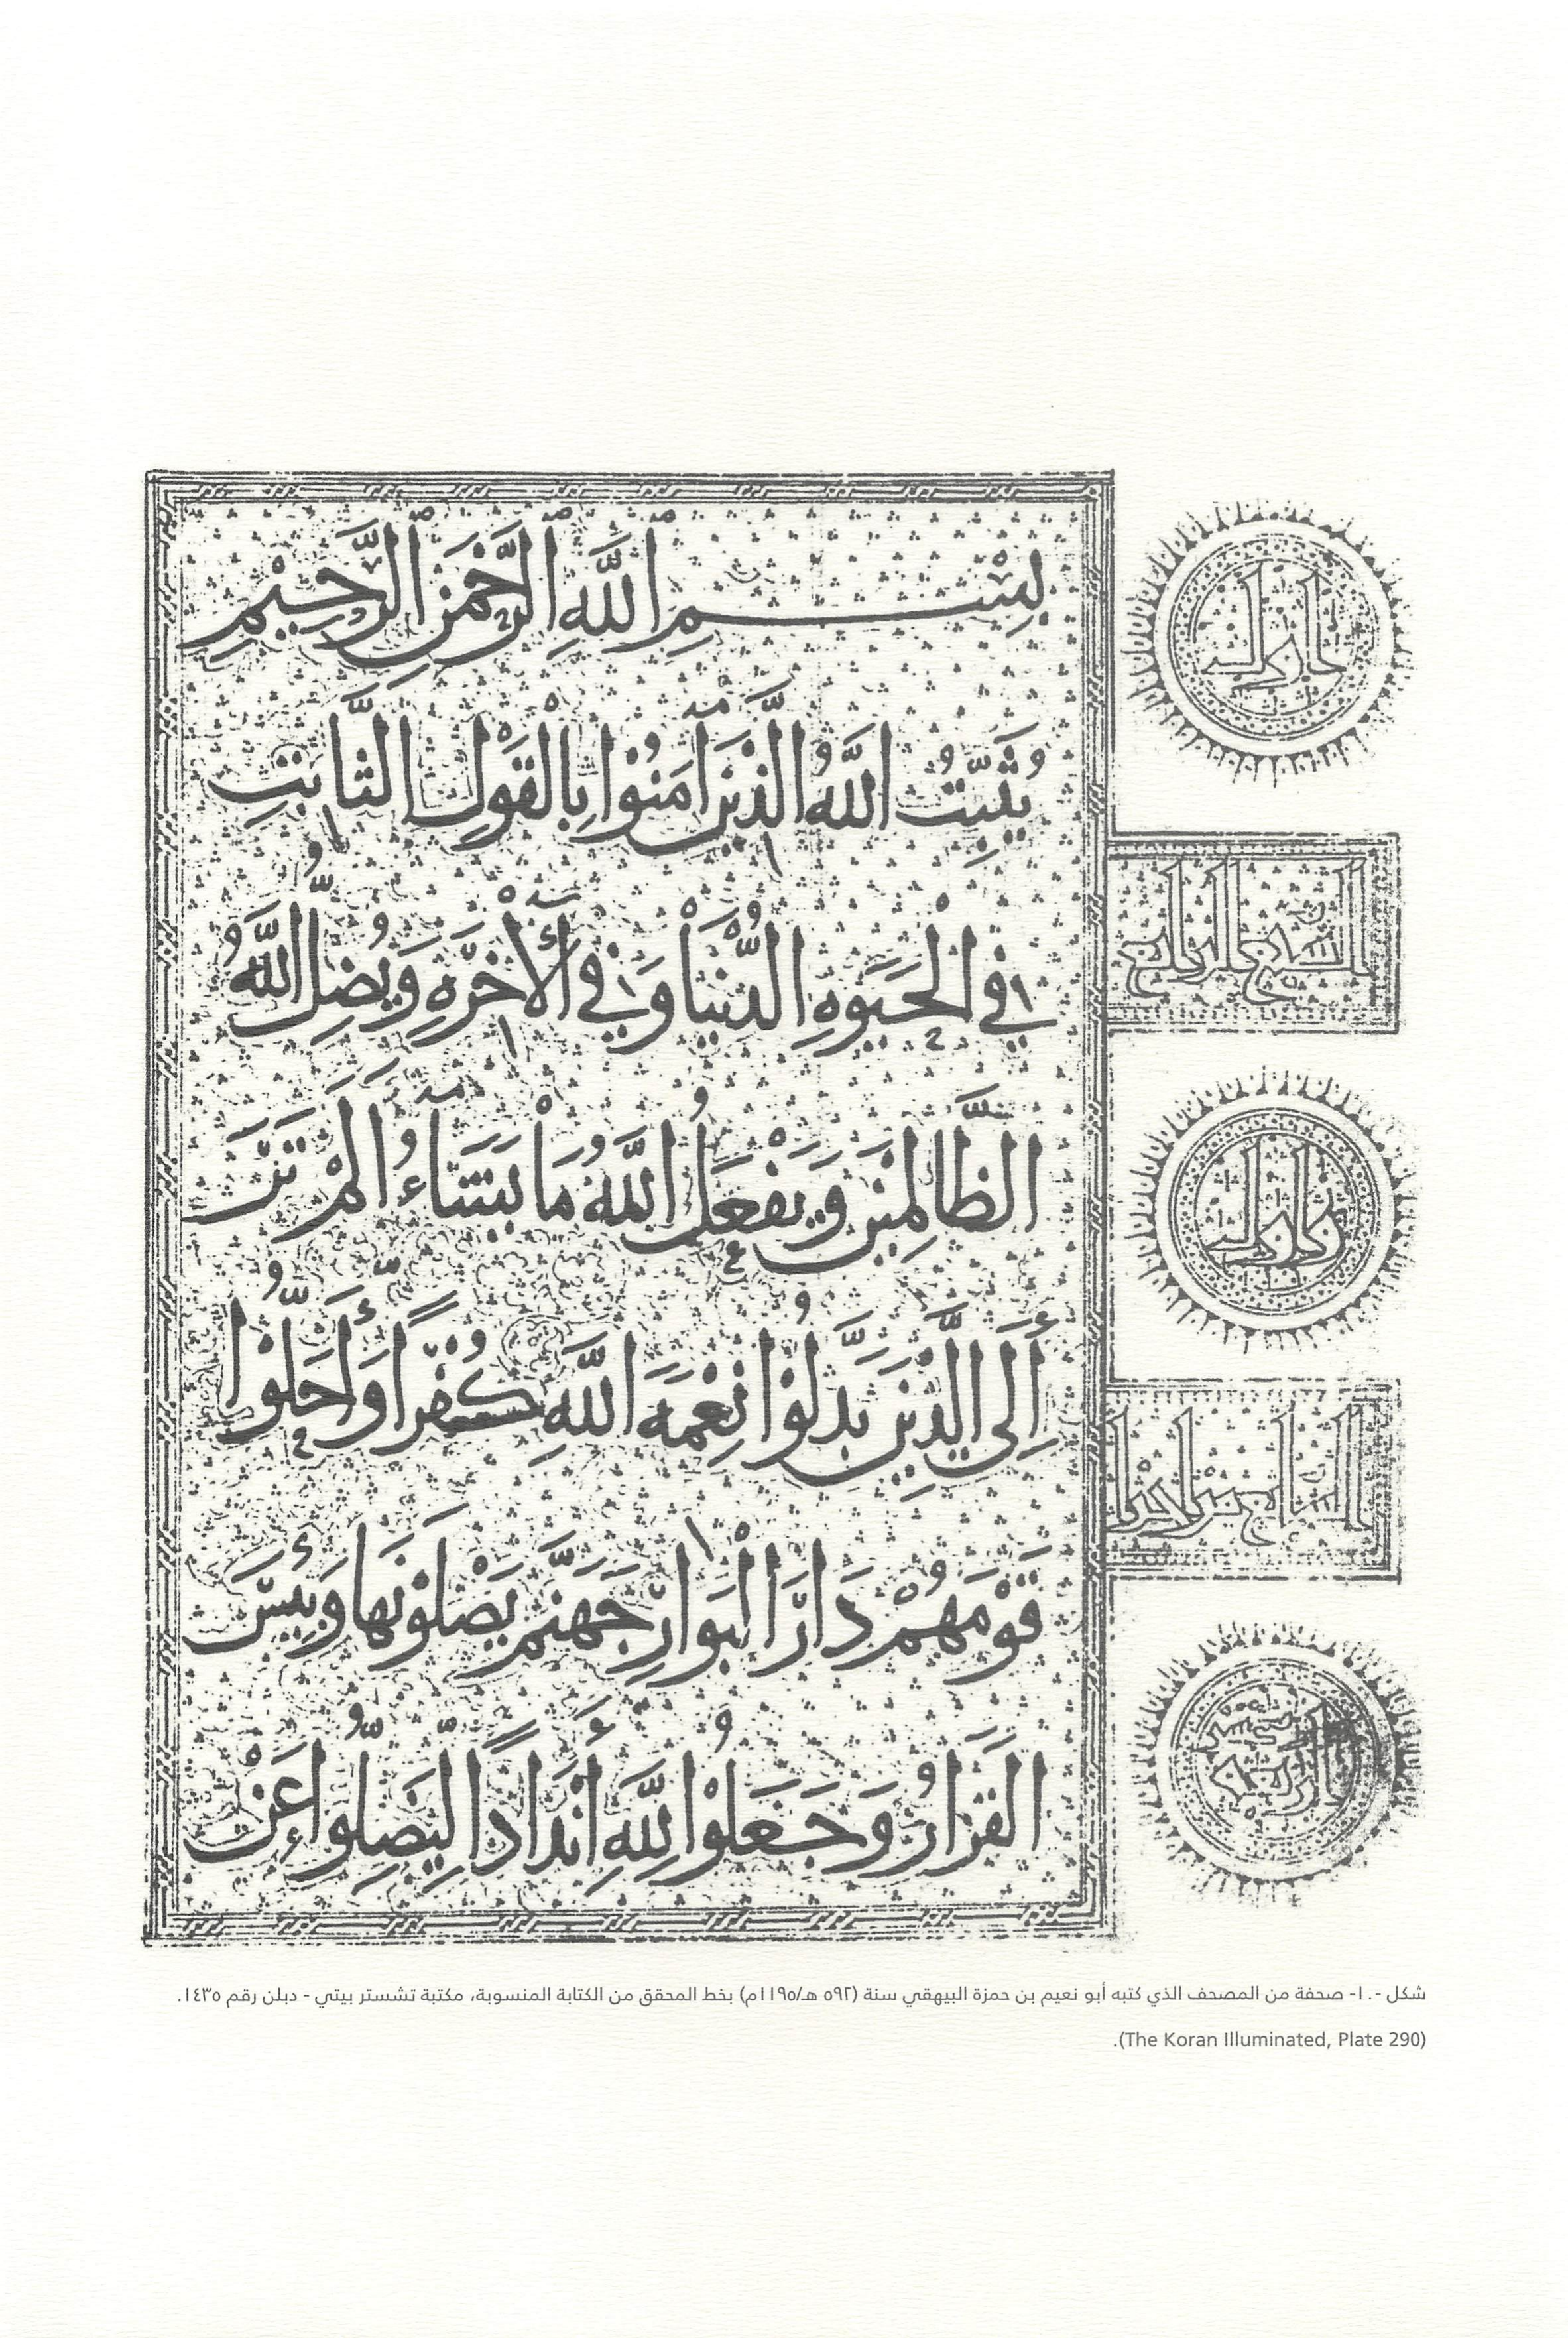 بِسْمِ اللَّهِ الرَّحْمَنِ الرَّحِيمِ
يُثَبِّتُ اللَّهُ الَّذِينَ امَنُوا بِالْقَوْلِ الثَّابِتِ
فِي الْحَيَوةِ الدُّنْيَا وَفِي الْأَخِرَةِ وَيُضِلُّ اللَّهُ
الظَّالِمِينَ وَيَفْعَلُ اللَّهُ مَا يَشَاءُ أَلَمْ تَرَ
إِلَى الَّذِينَ بَدَّلُوا نِعْمَةَ اللَّهِ كُفْرًا وَأَحَلُّوا
قَوْمَهُمْ دَارَ الْبَوَارِ جَهَنَّمَ يَصْلَوْنَهَا وَبِئْسَ
الْقَرَارُ وَجَعَلُوا لِلَّهِ أَنْدَادًا لِيُضِلُّوا عَنْ
شكل -١٠- صحفة من المصحف الذي كتبه أبو نعيم بن حمزة البيهقي سنة (٥٩٢ هـ/١١٩٥م) بخط المحقق من الكتابة المنسوبة، مكتبة تشستر بيتي - دبلن رقم ١٤٣٥.
(The Koran Illuminated, Plate 290).